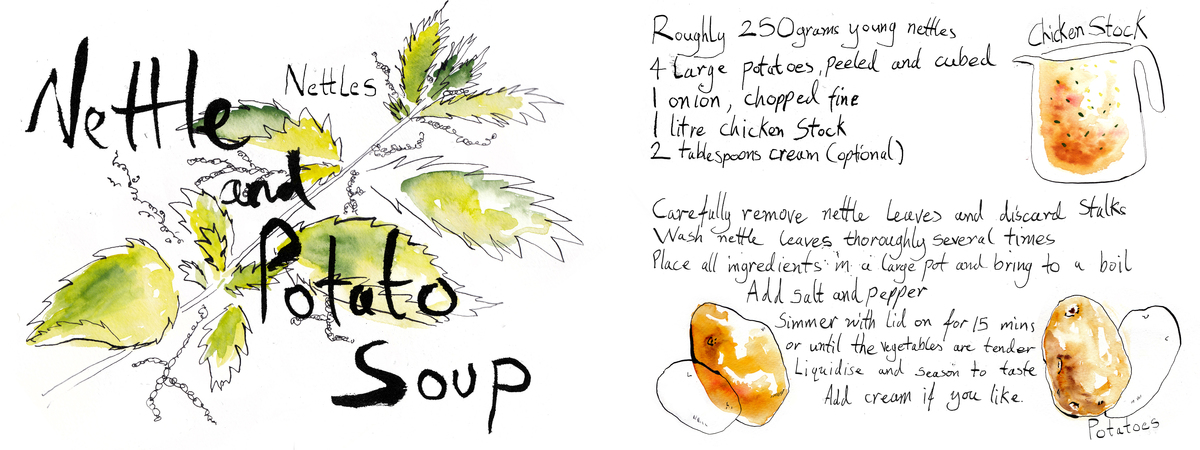 Nettle
Nettles
and
Potato
Soup
Roughly 250grams young nettles
4 Large potatoes, peeled and cubed
1 onion, chopped fine
1 litre chicken Stock
2 tablespoons cream (optional)
Chicken Stock
Carefully remove nettle leaves and discard Stalks
Wash nettle leaves thoroughly several times
Place all ingredients in a large pot and bring to a boil
Add salt and pepper
Simmer with Lid on for 15 mins
or until the vegetables are tender
Liquidise and season to taste
Add cream if you like.
Potatoes